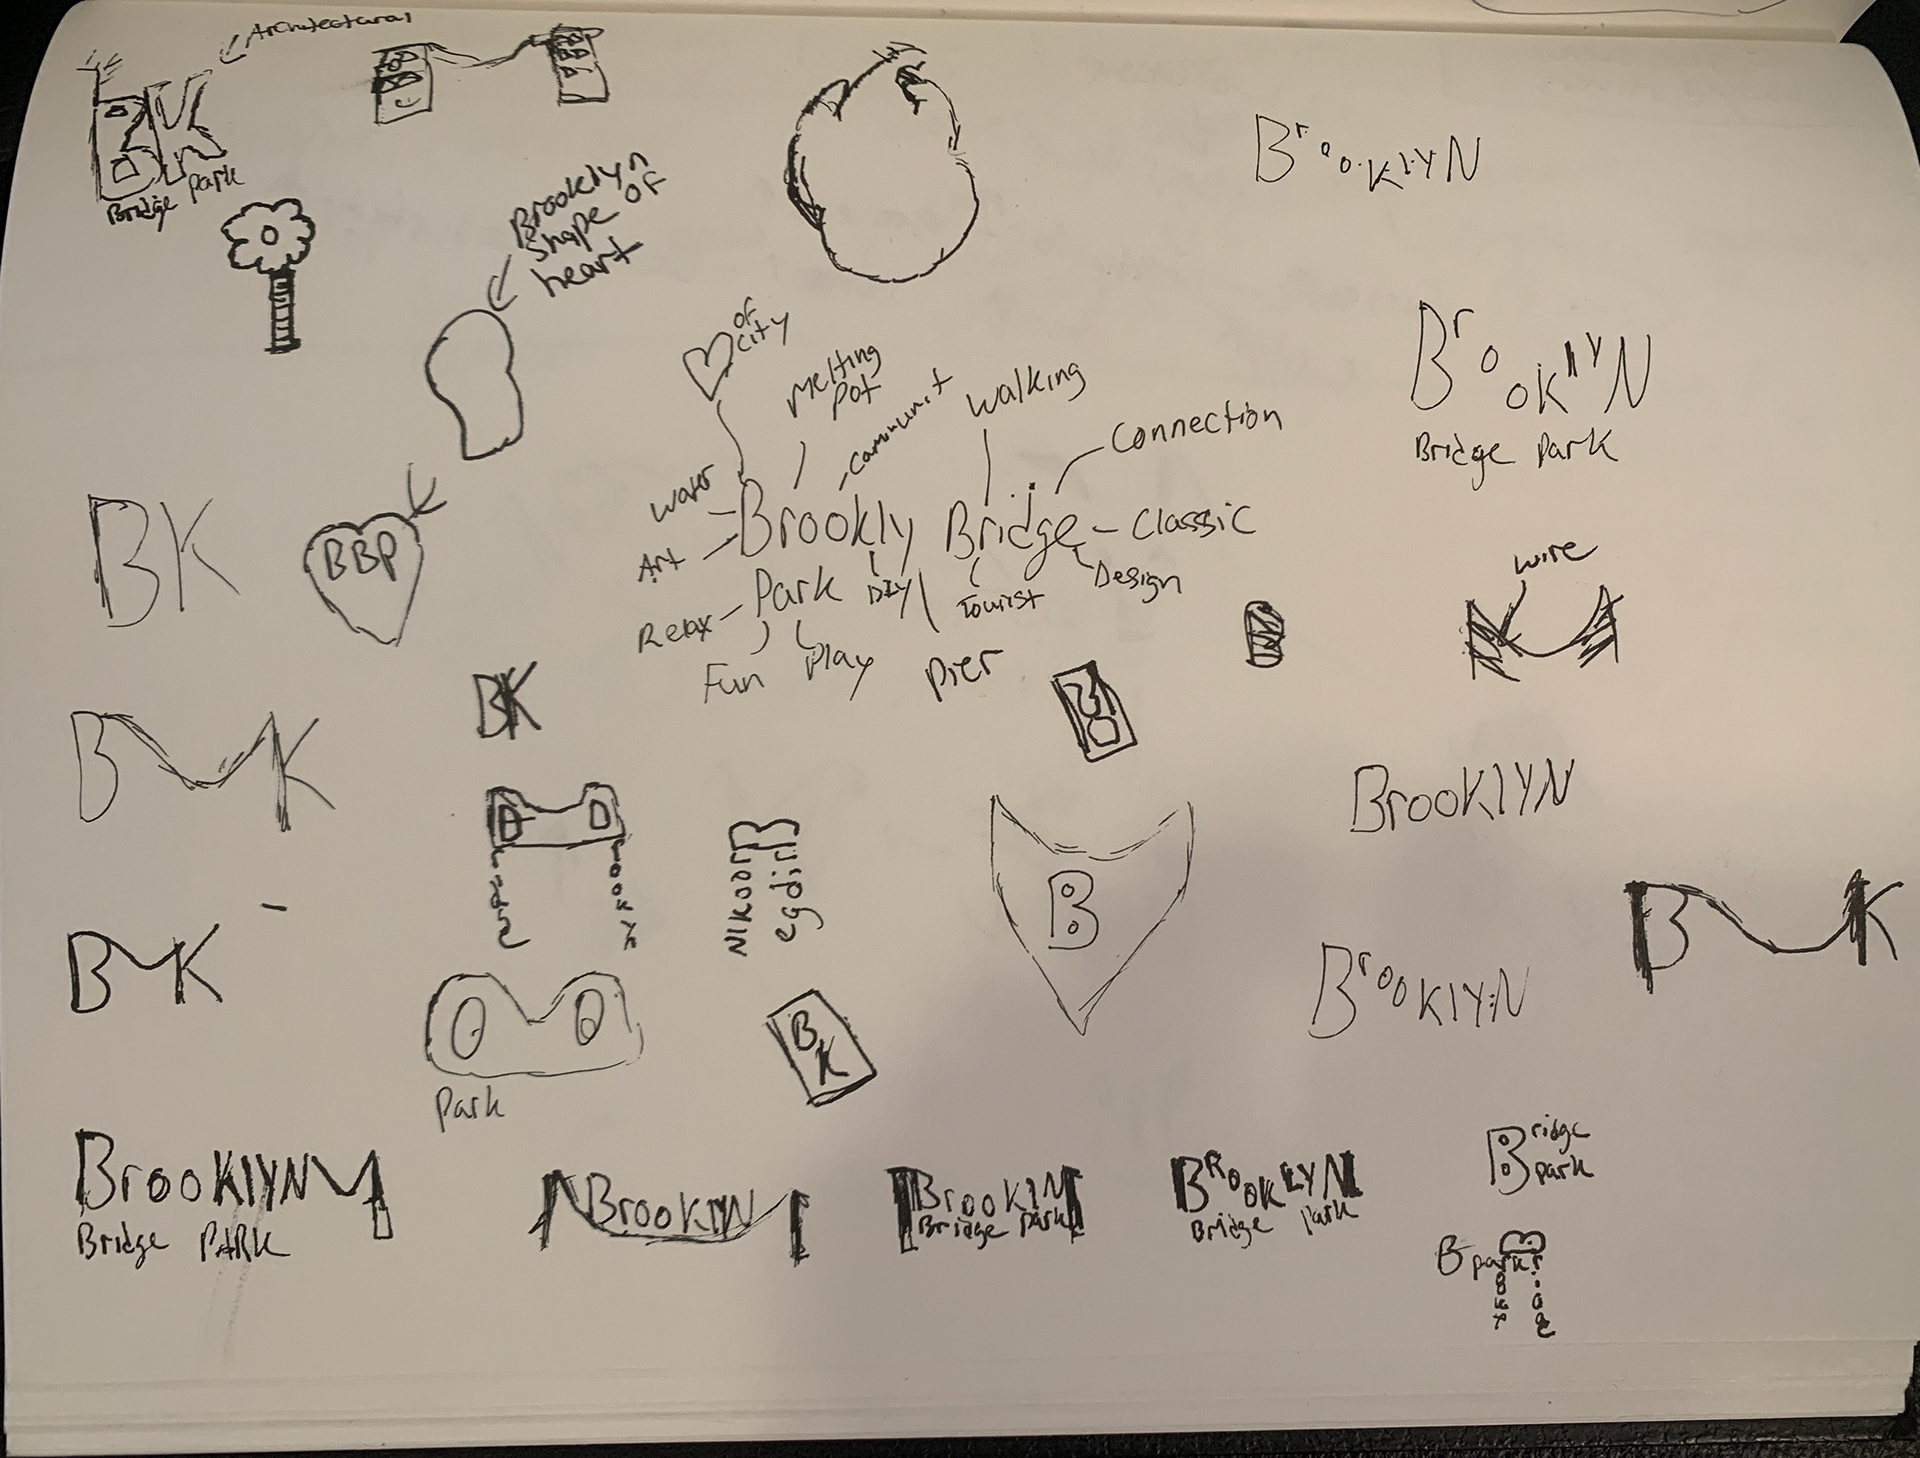 Architectural
BK
Bridge Park
Brooklyn
shape of
heart
BrooklyN
BrooklyN
Bridge Park
of
city
Melting
Pot
Communit
Walking
Connection
Water
Art
Brookly Bridge - Classic
Park
DIY
Tourist
Design
Relax
Fun
Play
Pier
wire
BK
BBP
BK
B K
BrooklyN
B
BrooklyN
B K
B K
B
K
Park
BrooklyN
Bridge PARK
BrooklyN
Brooklyn
Bridge Park
BROOKLYN
Bridge Park
Bridge
park
B park